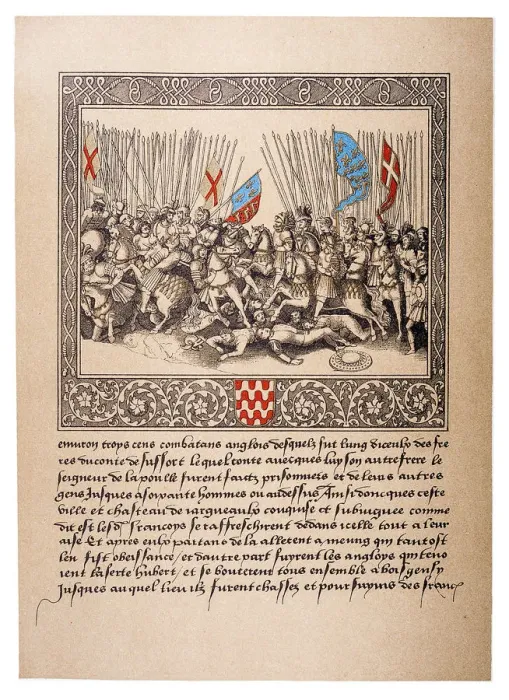 environ troys cens combatans anglois desquelz fut lung diceulx des fre
res du conte de suffort lequel conte avecques luy son autre frere le
seigneur de la poulle furent faictz prisonniers et de leurs autres
gens Jusques à soixante hommes ou au dessus Ainsi doncques ceste
ville et chasteau de iargueaulx conquise et subiuguee comme
dit est lesdz francoys se raffreschirent dedans icelle tout a leur
aise Et apres eulx partans de la allerent a meung qui tantost
leu fist obeissance / et dautre part fuyrent les angloys qui teno
ient la ferte hubert / et se bouterent tous ensemble a boisgensy
Jusques au quel lieu ilz furent chassez et poursuyvis des francoys